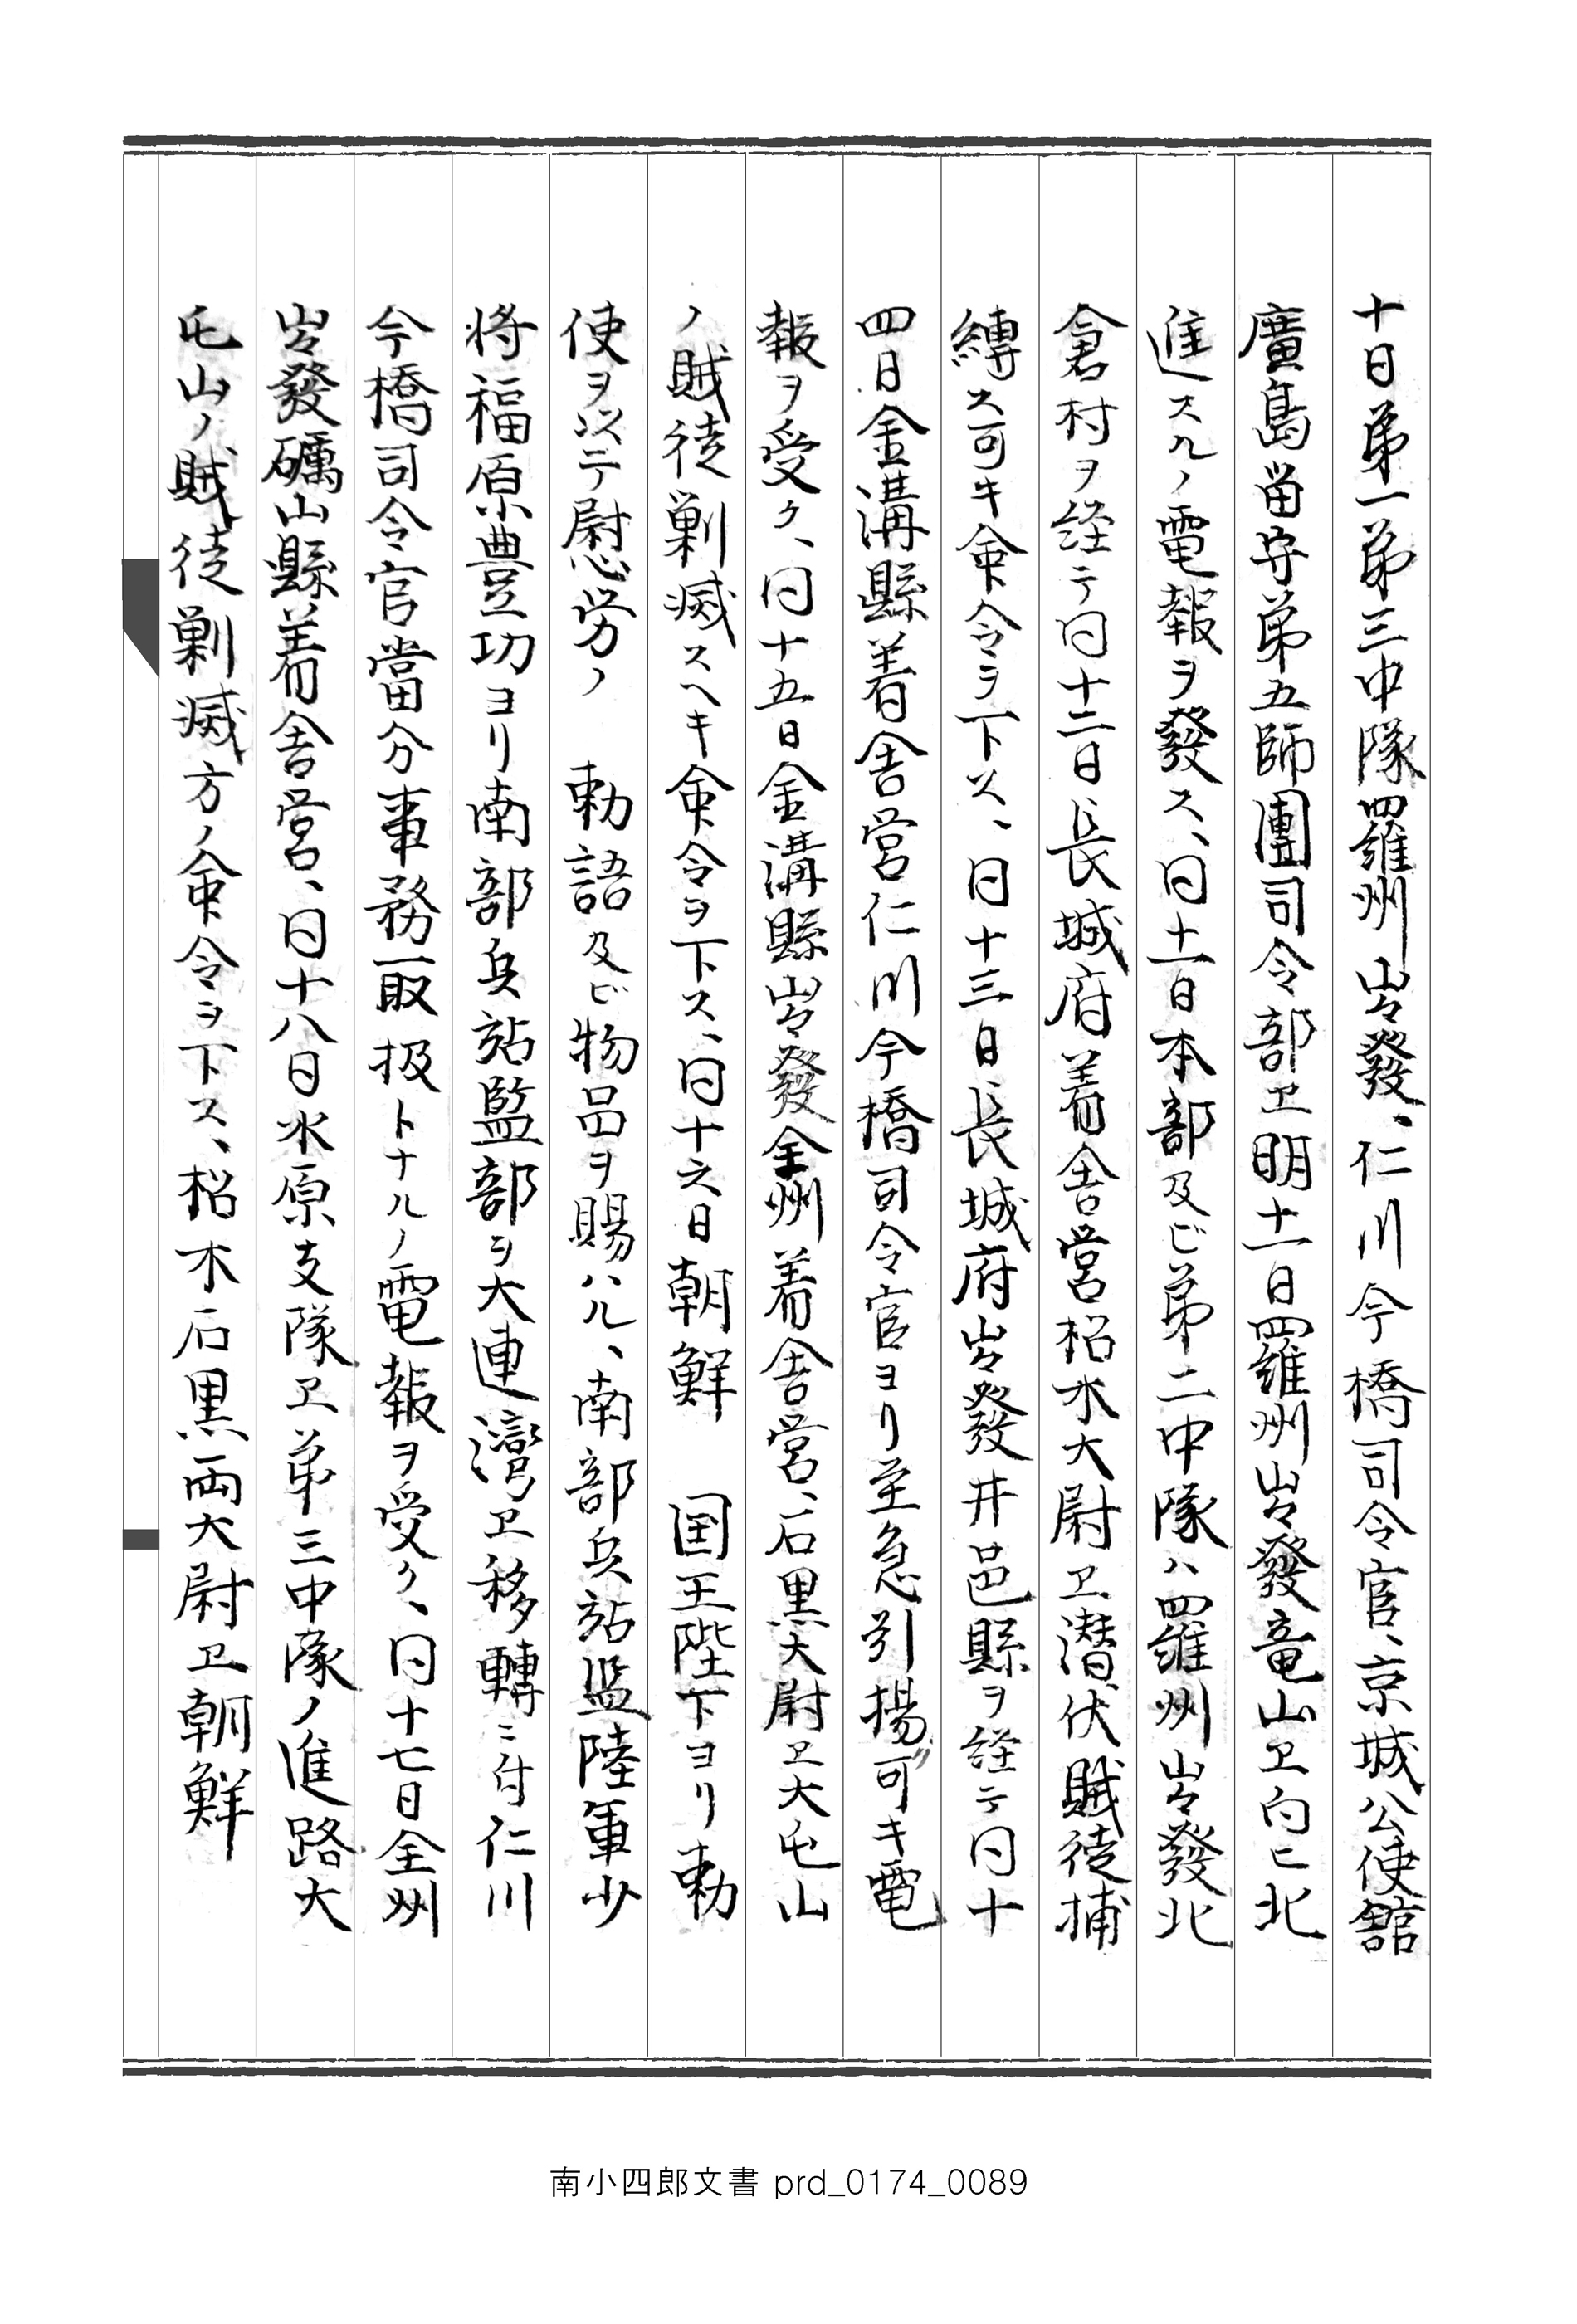 十日弟一弟三中隊羅州出發、仁川今橋司令官、京城公使舘
廣島畄守弟五師團司令部ヱ明十一日羅州出發竜山ヱ向ヒ北
進スルノ電報ヲ發ス、同十一日本部及ビ弟二中隊ハ羅州出發北
倉村ヲ経テ同十二日長城府着舎営柗木大尉ヱ潜伏賊徒捕
縛ス可キ命令ヲ下ス、同十三日長城府出發井邑縣ヲ経テ同十
四日金溝縣着舎営仁川今橋司令官ヨリ至急引揚ゲ可キ電
報ヲ受ク、同十五日金溝縣出發全州着舎営、石黒大尉ヱ大屯山
ノ賊徒剿滅スヘキ命令ヲ下ス、同十六日朝鮮　国王陛下ヨリ勅
使ヲ以テ慰労ノ　勅語及ビ物品ヲ賜ハル、南部兵站監陸軍少
将福原豊功ヨリ南部兵站監部ヲ大連灣ヱ移轉ニ付仁川
今橋司令官當分事務取扱トナルノ電報ヲ受ク、同十七日全州
出發礪山縣着舎営、同十八日水原支隊ヱ弟三中隊ノ進路大
屯山ノ賊徒剿滅方ノ命令ヲ下ス、柗木石黒両大尉ヱ朝鮮
南小四郎文書 prd_0174_0089